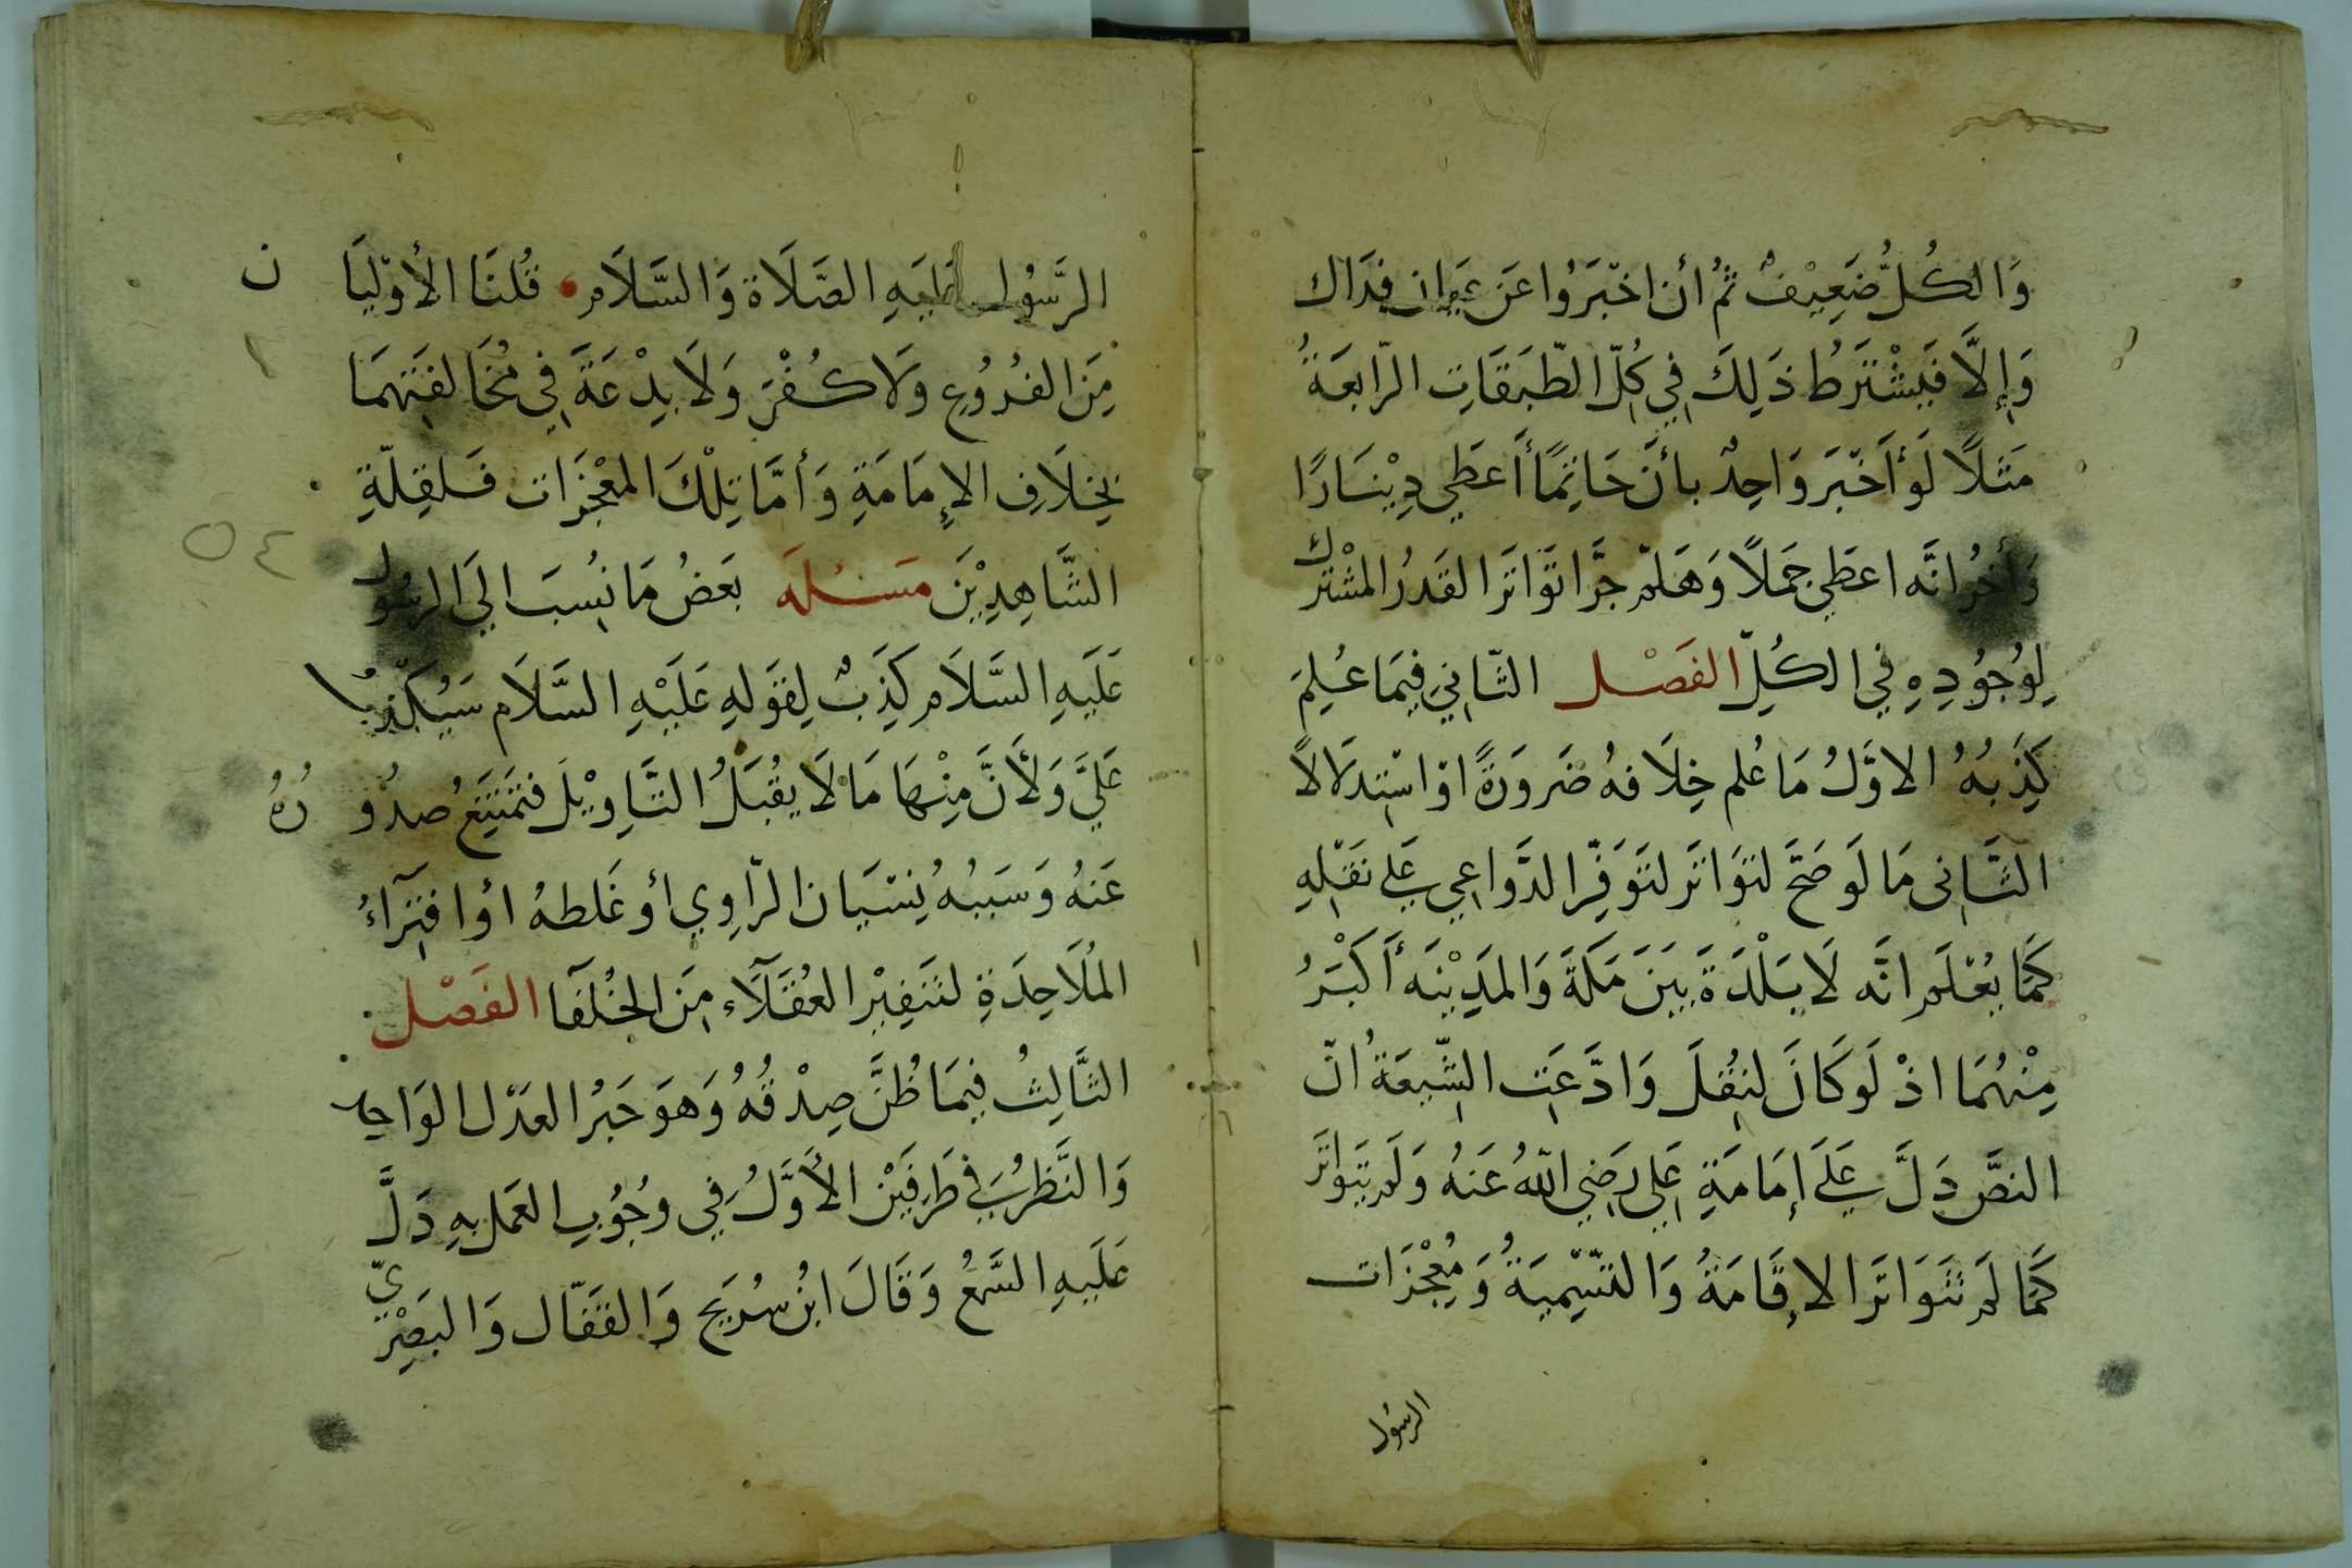 وَالكُلُّ ضَعِيْفٌ ثُمَّ أن اخْبَرُوا عَن عِيَان فذَاك
وَإِلَّا فَيُشْتَرَطُ ذَلِكَ فِي كُلِّ الطَّبَقَاتِ الرَّابِعَةُ
مَثَلًا لَوْ أَخْبَرَ وَاحِدٌ بأنَّ حَاتِمًا أَعطَي دِيْنَارًا
وَأخرُ انَّه اعطَي جَمَلًا وَهَلمّ جَرًّا تَوَاتَرَ القَدرُ المشْتَرَك
لِوُجُوُدِهِ فِي الكُلِّ الفَصْل الثَّانِي فِيمَا عُلِمَ
كَذِبُهُ الاوَّلُ مَا عُلم خِلَافهُ ضَروَرَةً اوْ اسْتِدلَالًا
الثَّانِى مَا لَو صَحَّ لتوَاتَر لتَوَفّرِ الدَّوَاعِي عَلي نقَلِهِ
كَمَا يُعْلَم انَّه لَا بَلْدَةَ بَيَنَ مَكَةَ وَالمَدِيْنَه أَكْبَرُ
مِنْهُمَا اذْ لَو كَانَ لنُقِلَ وَادَّعَتِ الشّيعَةُ انّ
النصَّ دَلَّ عَلَي إمَامَةِ عَلِي رَضِي اللهُ عَنهُ وَلَم يَتَواتَرَ
كَمَا لَم تَتَوَاتَرَ الإِقَامَةُ وَالتَّسْمِيَةُ وَمُعْجِزَات
الرسوُل
الرَّسوُل عَلَيهِ الصَّلَاة وَالسَّلَام قُلنَا الأوّليَا ن
مِنَ الفرُوُعِ وَلَا كُفْرَ وَلَا بِدْعَةَ فِي مُخَالفَتِهمَا
بِخِلَافِ الإِمَامَةِ وَأمَّا تِلْكَ المعْجِزَات فَلقِلّةِ
الشَّاهِدِيْنَ مَسئلَه بعَضُ مَا نُسِبَ الَي الرسُول
عَلَيهِ السَّلَام كَذِبٌ لِقَولهِ عَلَيْهِ السَّلَام سَيُكذّبُ
عَلَيَّ وَلأَنَّ مِنْهَا مَا لَا يقُبَلُ التَّاوِيْل فتمَتَنِعُ صدُو رُهُ
عَنهُ وَسَبَبُهُ نِسْيَان الرّاوِي أو غَلطهُ اوُ افتِرَاءُ
المَلَاحِدَةِ لتَنفِيْرِ العُقَلَاءِ مِنَ الخُلفَا الفَصْل
الثَّالِثُ فِيمَا ظُنَّ صِدْقُهُ وَهوَ خَبرُ العَدْل الوَاحِد
وَالنَّظرُ فِي طَرفَيْنِ الأَوَّلُ فِي وجُوُبِ العَمل بِهِ دَلَّ
عَلَيهِ السَّمْعُ وَقَالَ ابنُ سُرَيج وَالقَفّال وَالبَصْرِيّ